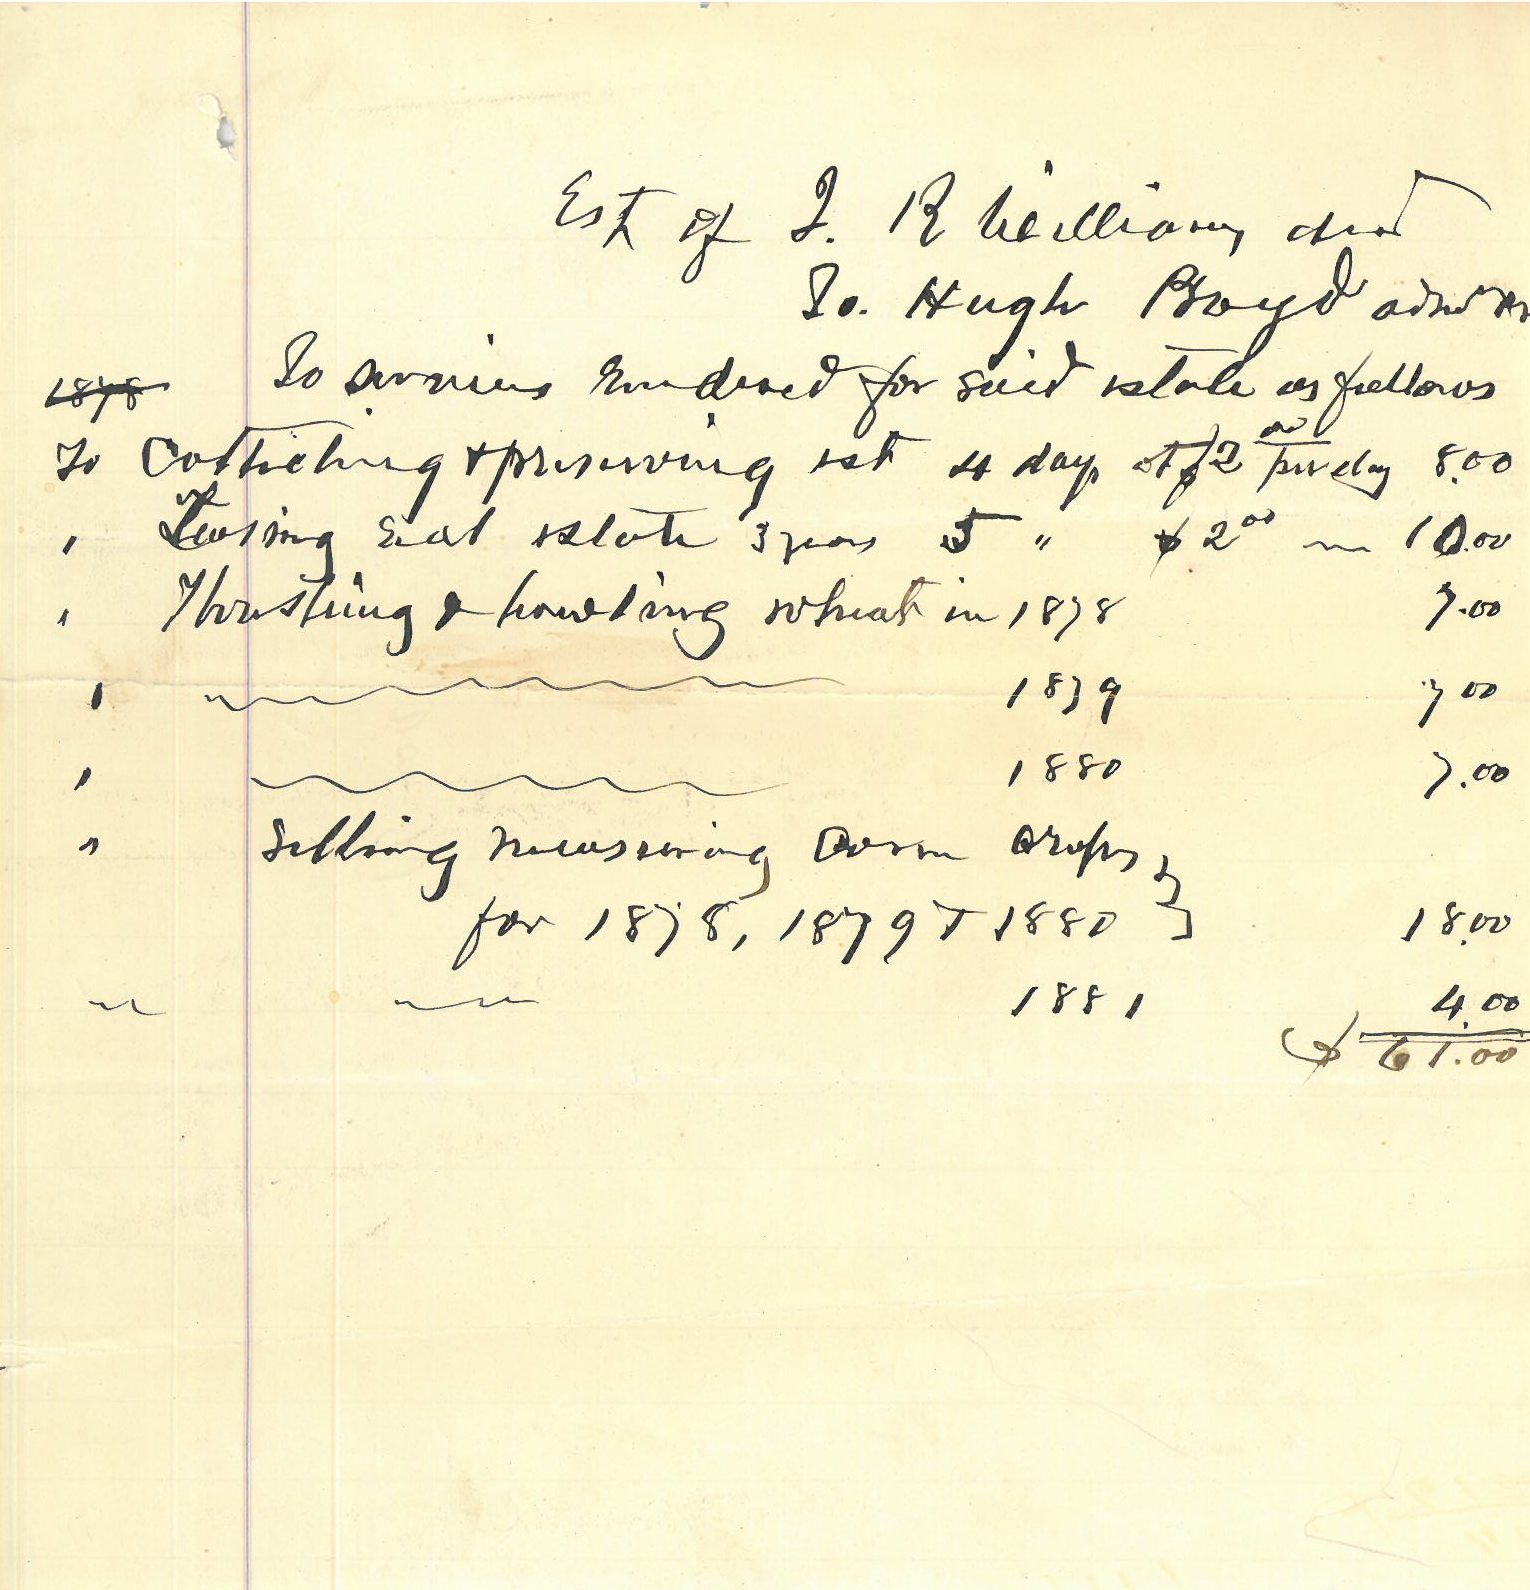 Est of J. R Williams decd
To. Hugh Boyd admr
1878 To servises rendered for said estate as follows
To Collecting & preserving est 4 days at $2 00 per day 8.00
" Leasing real estate 3 years 5 " $2 00 " 10.00
" Thrushing & howling wheat in 1878 7.00
" 1879 7 00
" 1880 7.00
" Selling measuring Corn Crops
for 1878, 1879 + 1880 } 18.00
" " 1881 4.00
$ 61.00